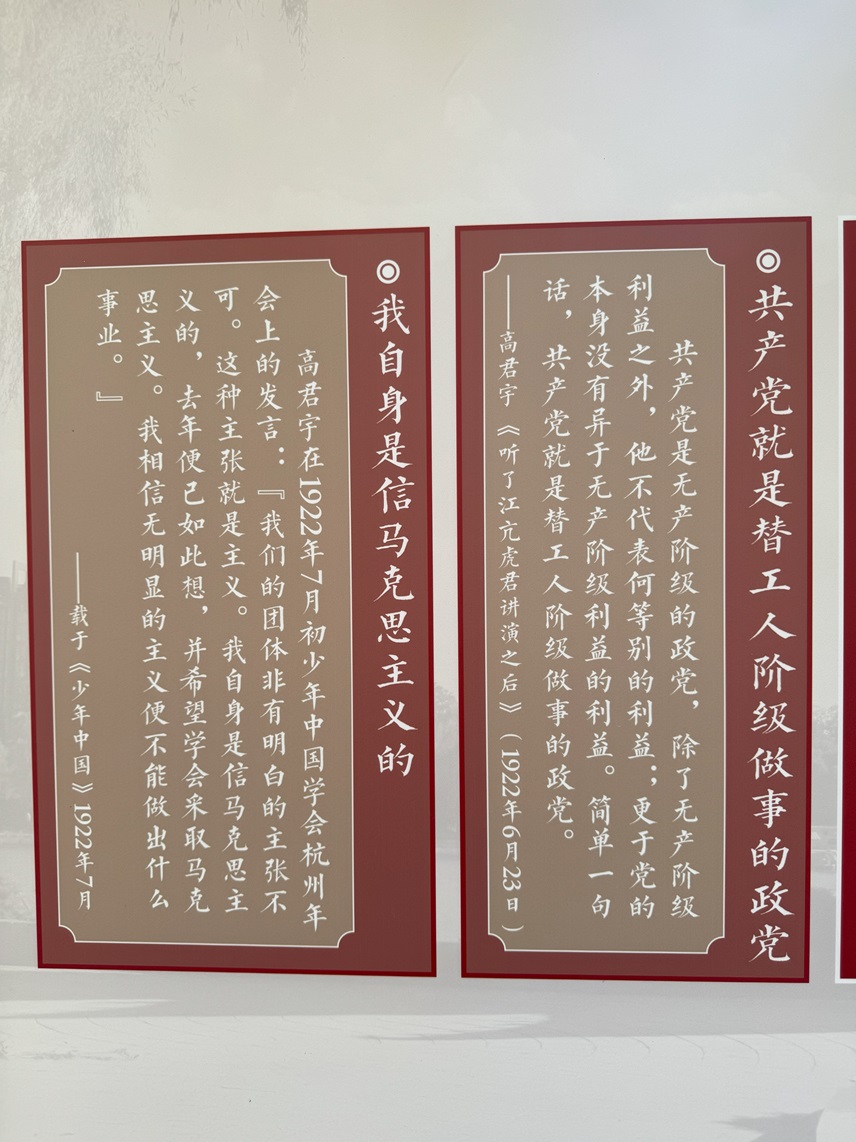 ◎共产党就是替工人阶级做事的政党
共产党是无产阶级的政党，除了无产阶级
利益之外，他不代表何等别的利益；更于党的
本身没有异于无产阶级利益的利益。简单一句
话，共产党就是替工人阶级做事的政党。
——高君宇《听了江亢虎君讲演之后》（1922年6月23日）
◎我自身是信马克思主义的
高君宇在1922年7月初少年中国学会杭州年
会上的发言：『我们的团体非有明白的主张不
可。这种主张就是主义。我自身是信马克思主
义的，去年便已如此想，并希望学会采取马克
思主义。我相信无明显的主义便不能做出什么
事业。』
——载于《少年中国》1922年7月